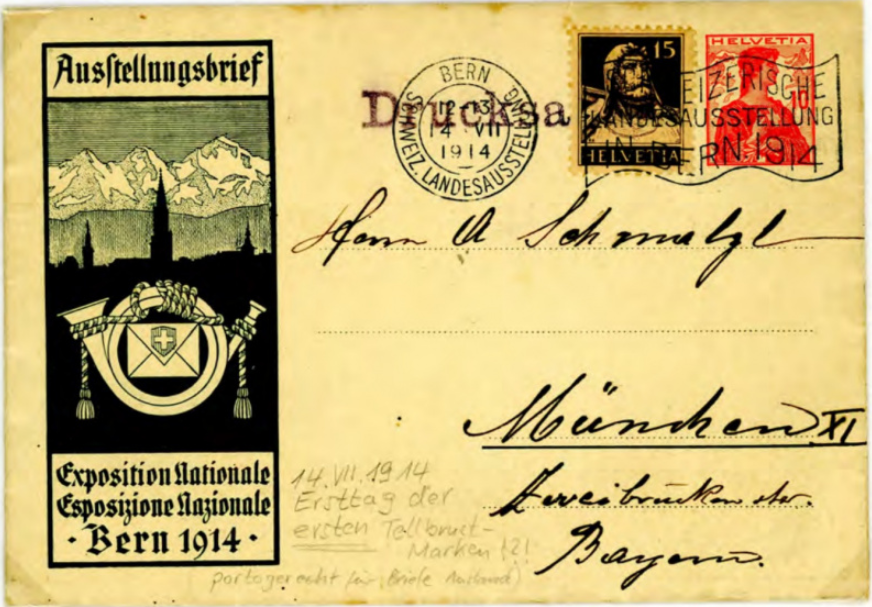 Ausstellungsbrief
Exposition Nationale
Esposizione Nazionale
· Bern 1914 ·
Drucksa
BERN
12-13
14 VII
1914
SCHWEIZ. LANDESAUSSTELLUNG
15
HELVETIA
HELVETIA
10
EIZERISCHE
LANDESAUSSTELLUNG
IN BERN 1914
Herrn A Schmalzl
München XI
Zweibrückenstr.
Bayern.
14.VII.1914
Ersttag der
ersten Tellbrust-
Marken
portogerecht für Briefe Ausland)